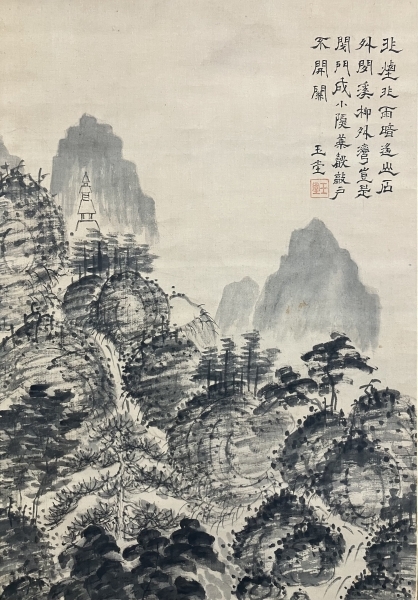 非煙非雨暗遙山石
外閑溪柳外灣豈是
閉門成小隱葉聲敲戶
不開關
玉堂